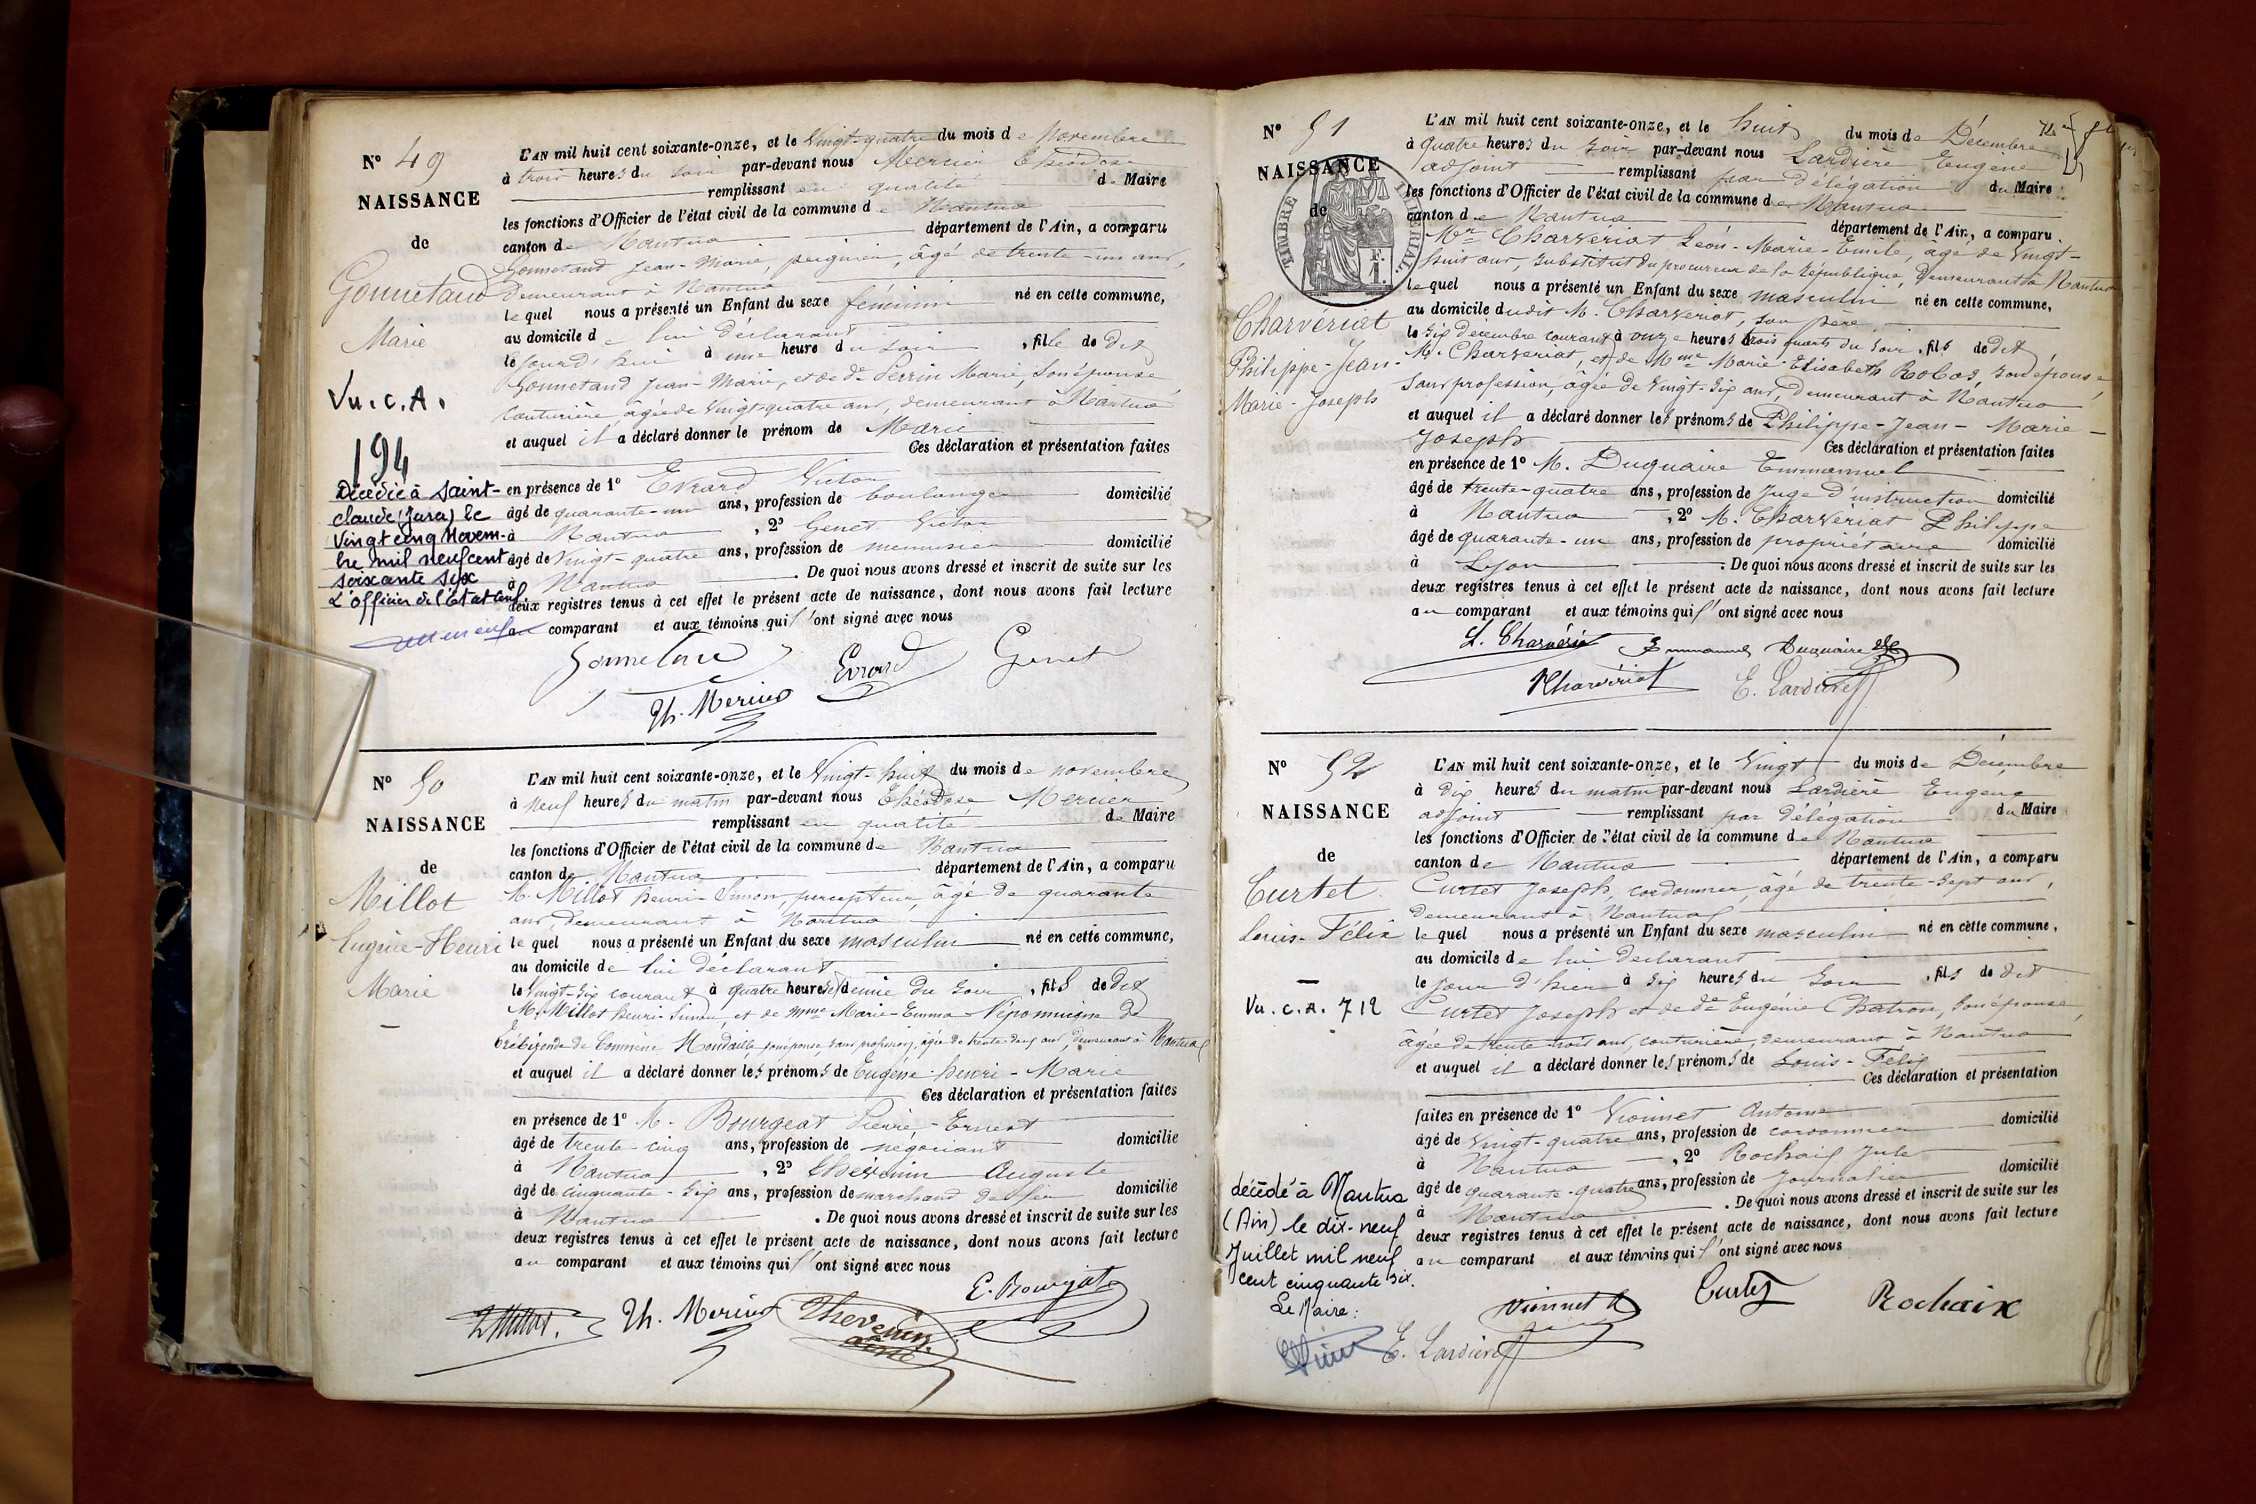 N° 49
NAISSANCE
de
Gonnetand
Marie
Vu. C. A.
194
Décédée à Saint-
claude (Jura) le
Vingt cinq Novem-
bre mil neuf cent
soixante six
L'officier de l'Etat Civil
L'AN mil huit cent soixante-onze, et le Vingt-quatre du mois de Novembre
à trois heures du soir par-devant nous Mercier Théodose
remplissant en qualité de Maire
les fonctions d'Officier de l'état civil de la commune de Nantua
canton de Nantua département de l'Ain, a comparu
Gonnetand Jean-Marie, peignier, âgé de trente-un ans,
demeurant à Nantua
lequel nous a présenté un Enfant du sexe féminin né en cette commune,
au domicile de lui déclarant
le jourd'hui à une heure du soir, fille de dit
Gonnetand Jean-Marie, et de de Perrin Marie, son épouse
couturière âgée de vingt-quatre ans, demeurant à Nantua
et auquel il a déclaré donner le prénom de Marie
Ces déclaration et présentation faites
en présence de 1° Evrard Victor
âgé de quarante-un ans, profession de boulanger domicilié
à Nantua, 2° Genet Victor
âgé de Vingt-quatre ans, profession de menuisier domicilié
à Nantua. De quoi nous avons dressé et inscrit de suite sur les
deux registres tenus à cet effet le présent acte de naissance, dont nous avons fait lecture
au comparant et aux témoins qui l'ont signé avec nous
Gonnetand Evrard Genet
Th. Mercier
N° 50
NAISSANCE
de
Millot
Eugène-Henri
Marie
L'AN mil huit cent soixante-onze, et le Vingt-huit du mois de novembre
à neuf heures du matin par-devant nous Théodose Mercier
remplissant en qualité de Maire
les fonctions d'Officier de l'état civil de la commune de Nantua
canton de Nantua département de l'Ain, a comparu
M. Millot henri-Simon, percepteur, âgé de quarante
ans, demeurant à Nantua
lequel nous a présenté un Enfant du sexe masculin né en cette commune,
au domicile de lui déclarant
le Vingt-six courant à quatre heures et demie du soir, fils de dit
M. Millot henri-Simon, et de Mme Marie-Emma-Népomucène de
Trébizonde de Commène Mondaille son épouse, sans profession, âgée de trente-deux ans, demeurant à Nantua
et auquel il a déclaré donner les prénoms de Eugène-henri-Marie
Ces déclaration et présentation faites
en présence de 1° M. Bourgeat Pierre-Ernest
âgé de trente-cinq ans, profession de négociant domicilié
à Nantua, 2° Thévenin Auguste
âgé de cinquante-six ans, profession de marchand de fer domicilié
à Nantua. De quoi nous avons dressé et inscrit de suite sur les
deux registres tenus à cet effet le présent acte de naissance, dont nous avons fait lecture
au comparant et aux témoins qui l'ont signé avec nous
E. Bourgeat
H. Millot. Th. Mercier Thevenin
N° 51
NAISSANCE
de
TIMBRE IMPÉRIAL
Charvériat
Philippe-Jean-
Marie-Joseph
L'AN mil huit cent soixante-onze, et le huit du mois de Décembre
à quatre heures du soir par-devant nous Lardière Eugène
adjoint remplissant par délégation du Maire
les fonctions d'Officier de l'état civil de la commune de Nantua
canton de Nantua département de l'Ain, a comparu
Mr Charvériat Léon-Marie-Emile, âgé de Vingt-
huit ans, substitut du procureur de la République, demeurant à Nantua
lequel nous a présenté un Enfant du sexe masculin né en cette commune,
au domicile dudit M. Charvériat, son père
le six décembre courant à onze heures trois quarts du soir, fils de dit
M. Charvériat, et de Mme Marie-Elisabeth Rolas son épouse,
sans profession, âgée de vingt-six ans, demeurant à Nantua
et auquel il a déclaré donner les prénoms de Philippe-Jean-Marie-
Joseph Ces déclaration et présentation faites
en présence de 1° M. Duquaire Emmanuel
âgé de trente-quatre ans, profession de Juge d'instruction domicilié
à Nantua, 2° M. Charvériat Philippe
âgé de quarante-un ans, profession de propriétaire domicilié
à Lyon. De quoi nous avons dressé et inscrit de suite sur les
deux registres tenus à cet effet le présent acte de naissance, dont nous avons fait lecture
au comparant et aux témoins qui l'ont signé avec nous
L. Charvériat Emmanuel Duquaire
Charvériat E. Lardière
N° 52
NAISSANCE
de
Curtet
Louis-Félix
Vu. C. A. 712
décédé à Nantua
(Ain) le dix-neuf
Juillet mil neuf
cent cinquante six.
Le Maire:
L'AN mil huit cent soixante-onze, et le Vingt du mois de Décembre
à dix heures du matin par-devant nous Lardière Eugène
adjoint remplissant par délégation du Maire
les fonctions d'Officier de l'état civil de la commune de Nantua
canton de Nantua département de l'Ain, a comparu
Curtet Joseph, cordonnier, âgé de trente-sept ans,
demeurant à Nantua
lequel nous a présenté un Enfant du sexe masculin né en cette commune,
au domicile de lui déclarant
le jour d'hier à six heures du soir, fils de dit
Curtet Joseph et de de Eugénie Chatron, son épouse,
âgée de trente-trois ans, couturière, demeurant à Nantua
et auquel il a déclaré donner les prénoms de Louis-Félix
Ces déclaration et présentation
faites en présence de 1° Vionnet Antoine
âgé de vingt-quatre ans, profession de cordonnier domicilié
à Nantua, 2° Rochaix Jules
âgé de quarante-quatre ans, profession de journalier domicilié
à Nantua. De quoi nous avons dressé et inscrit de suite sur les
deux registres tenus à cet effet le présent acte de naissance, dont nous avons fait lecture
au comparant et aux témoins qui l'ont signé avec nous
Vionnet Curtet Rochaix
E. Lardière